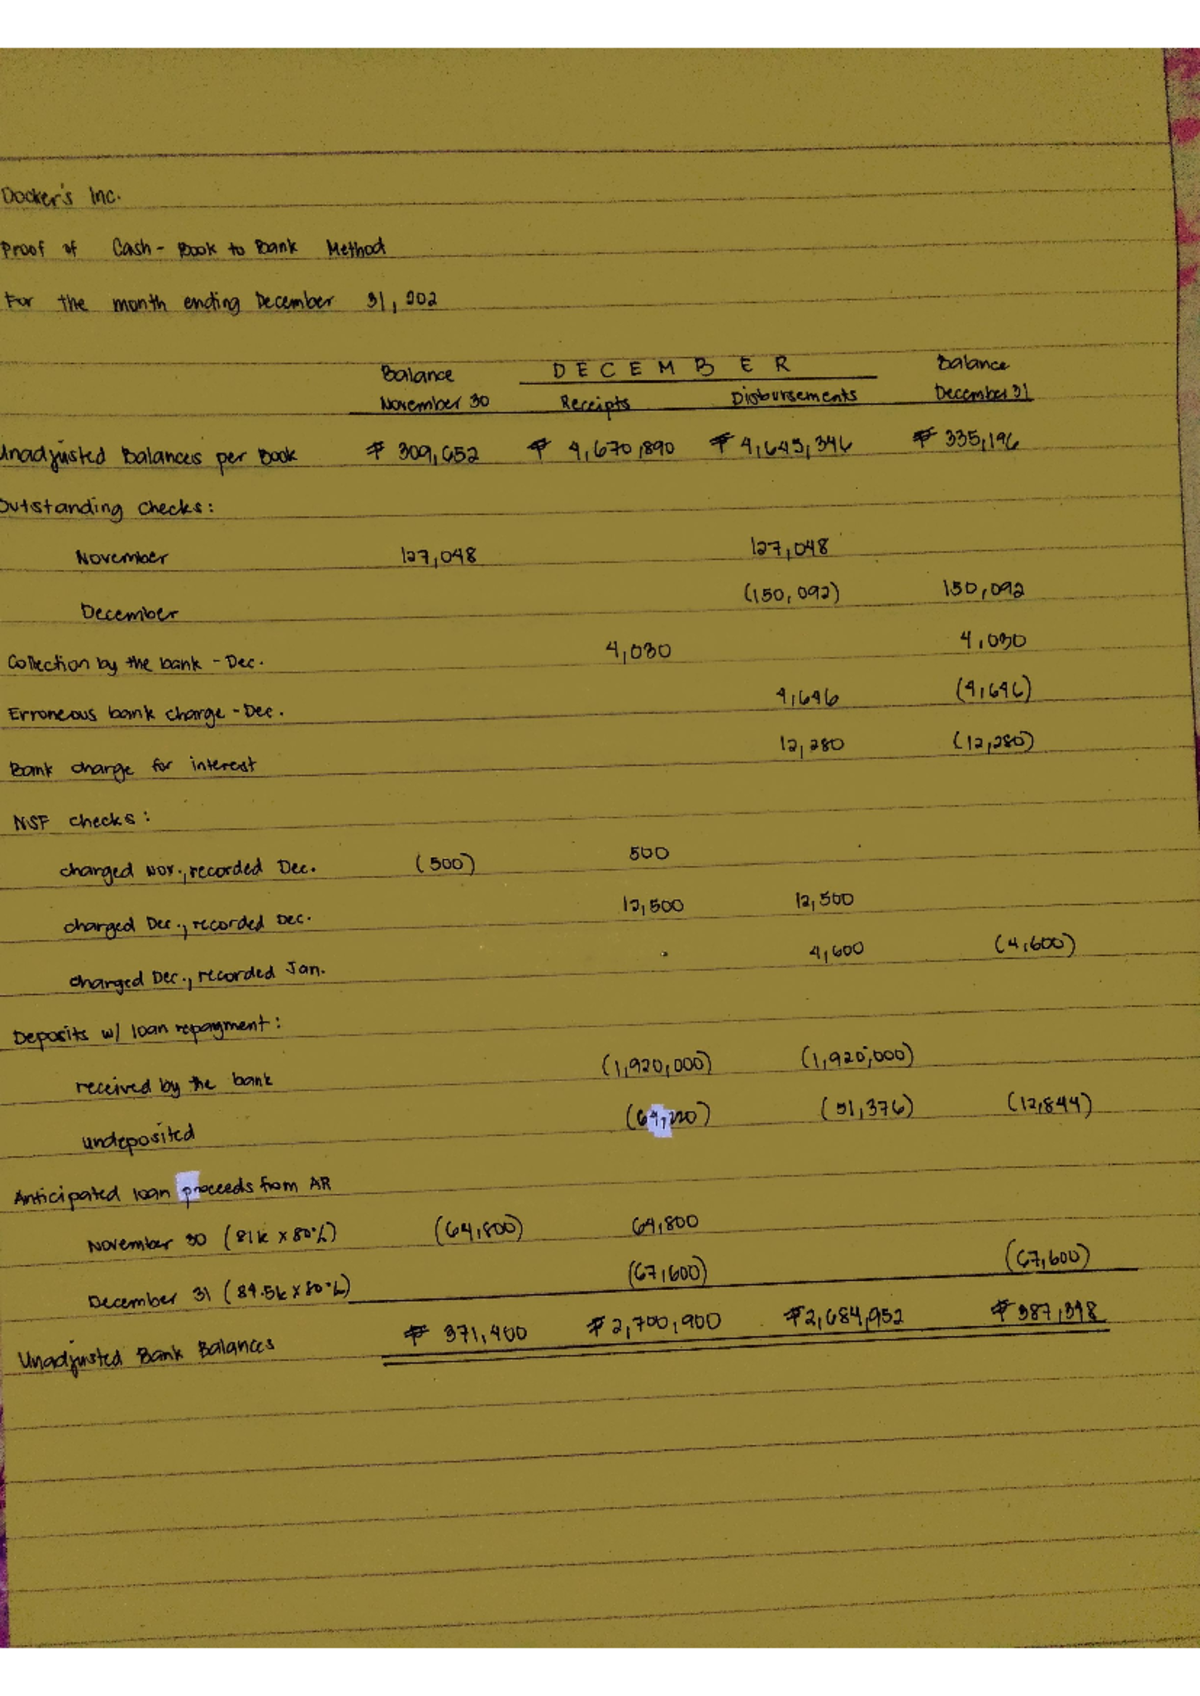 Docker's Inc.
Proof of Cash - Book to Bank Method
For the month ending December 31, 202
Balance November 30 DECEMBER Receipts Disbursements Balance December 31
Unadjusted Balances per Book ₱ 309,652 ₱ 4,670,890 ₱ 4,645,346 ₱ 335,196
Outstanding checks:
November 127,048 127,048
December (150,092) 150,092
Collection by the bank - Dec. 4,030 4,030
Erroneous bank charge - Dec. 4,646 (4,646)
Bank charge for interest 12,280 (12,280)
NSF checks:
charged Nov., recorded Dec. (500) 500
charged Dec., recorded Dec. 12,500 12,500
charged Dec., recorded Jan. 4,600 (4,600)
Deposits w/ loan repayment:
received by the bank (1,920,000) (1,920,000)
undeposited (64,220) (51,376) (12,844)
Anticipated loan proceeds from AR
November 30 (81k x 80%) (64,800) 64,800
December 31 (84.5k x 80%) (67,600) (67,600)
Unadjusted Bank Balances ₱ 371,400 ₱ 2,700,900 ₱ 2,684,952 ₱ 387,348